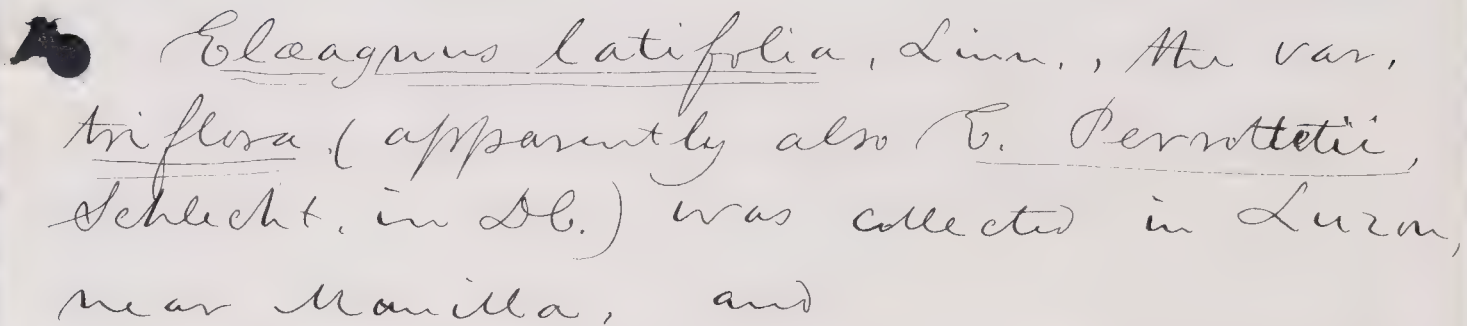 Elæagnus latifolia, Linn., the var.
triflora (apparently also E. Perrottetii,
Schlecht. in DC.) was collected in Luzon,
near Manilla, and